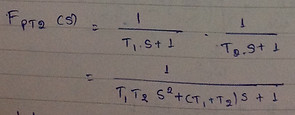 F_PT2 (s) = 1 / (T_1.s+1) · 1 / (T_2.s+1)
= 1 / (T_1 T_2 s^2+(T_1+T_2)s + 1)